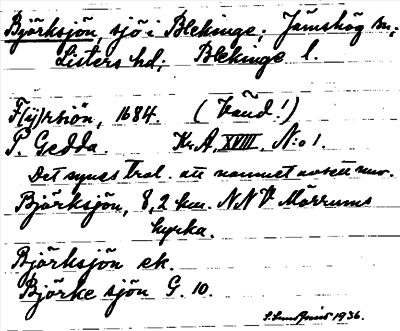 Björksjön, sjö i Blekinge; Jämshög sn;
Listers hd; Blekinge l.
F(y)rsiön, 1684. (Vaud!)
P. Gedda. Kr. A. XVIII, N:o 1.
Det synes trol. att namnet avsett nuv.
Björksjön, 8,2 km. NNV Mörrums
kyrka.
Björksjön ek.
Björke sjön G. 10.
1936.